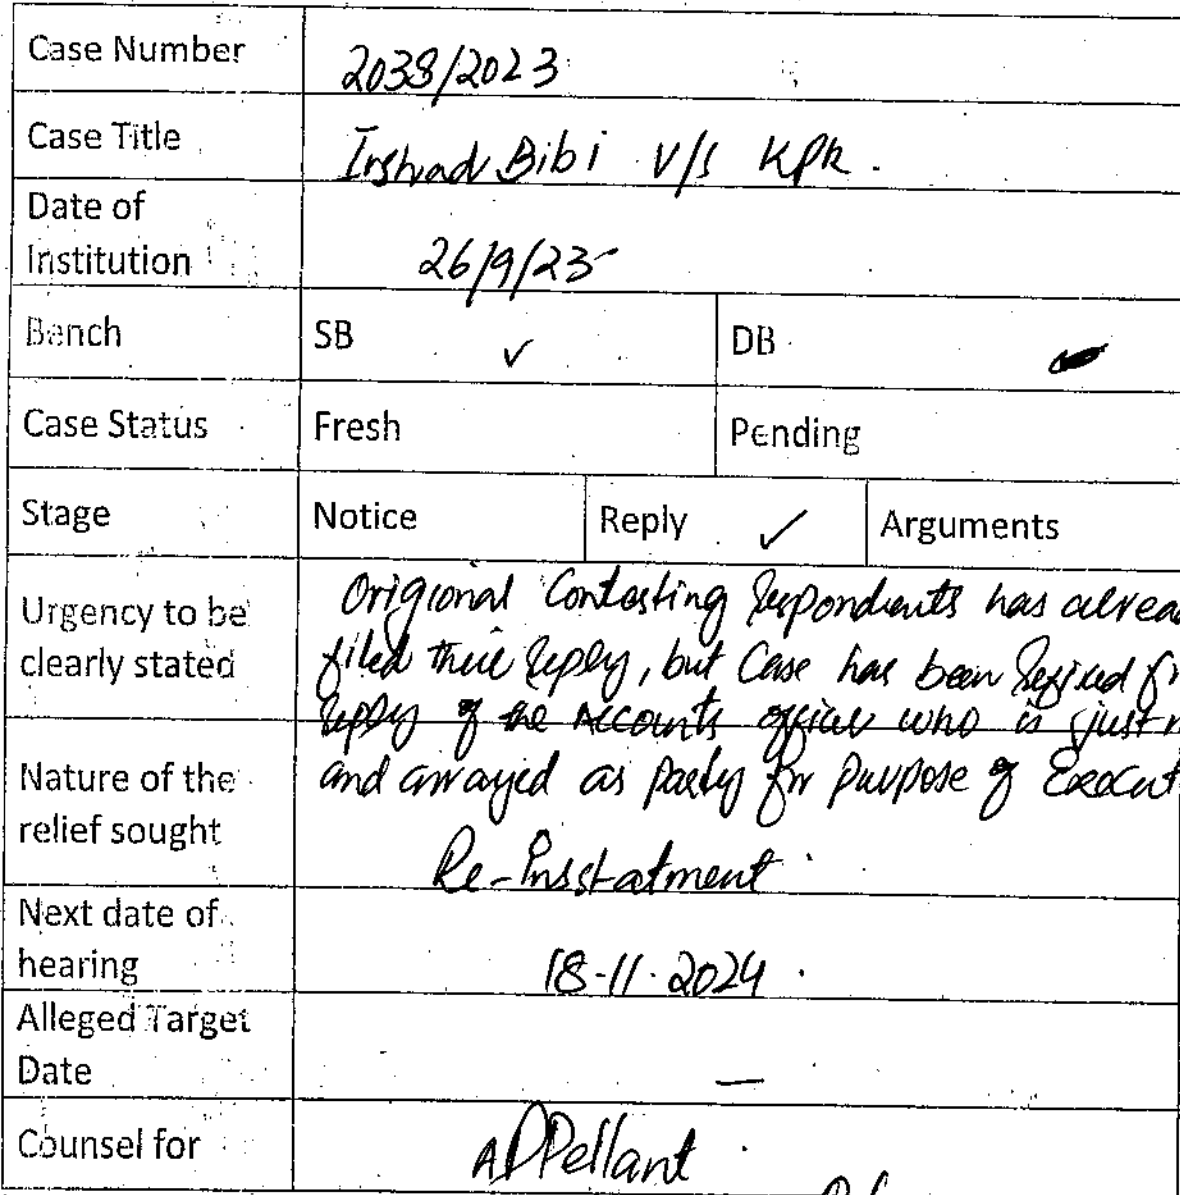 Case Number 2038/2023
Case Title Irshad Bibi v/s KPK.
Date of
Institution 26/9/23
Bench SB ✓ DB
Case Status Fresh Pending
Stage Notice Reply ✓ Arguments
Urgency to be
clearly stated
Origional Contesting Respondents has alrea
filed their reply, but Case has been
reply of the Accounts officer who is just
and arrayed as party for purpose of Execut
Nature of the
relief sought
Re-Insstatment
Next date of
hearing 18-11-2024.
Alleged Target
Date —
Counsel for APPellant